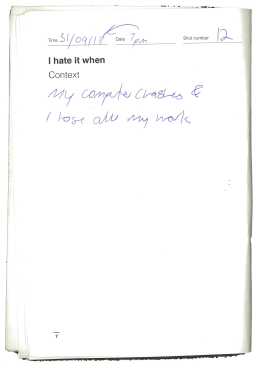 Time 31/09/18 Date 7pm Shot number 12
I hate it when
Context
My computer crashes &
I lose all my work
7